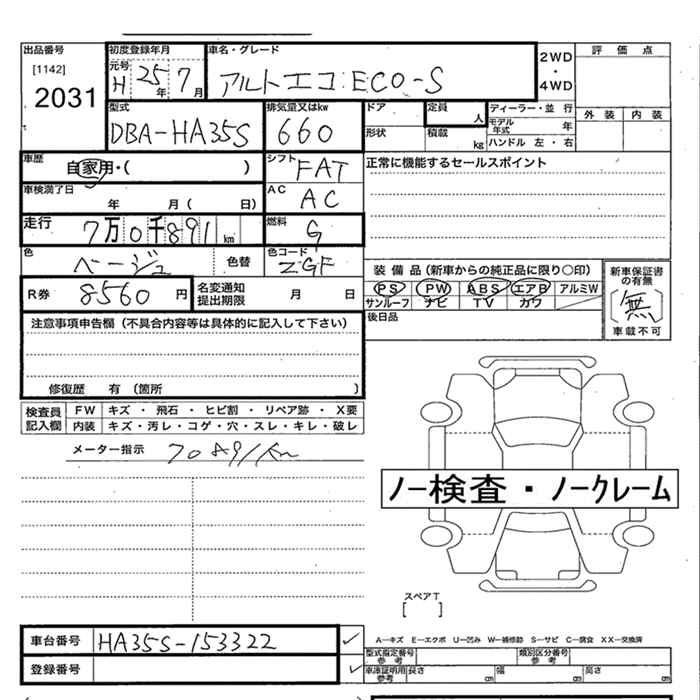 出品番号 初度登録年月 車名・グレード 評価点
[1142] 元号 H 25年 7月 アルトエコ ECO-S 2WD・4WD
2031
型式 排気量又はkw ドア 定員 人 ディーラー・並行 外装 内装
DBA-HA35S 660 形状 積載 kg モデル年式 年
ハンドル 左・右
車歴 自家用・( ) シフト FAT 正常に機能するセールスポイント
車検満了日 年 月( 日) AC AC
走行 7万0千891km 燃料 G
色 ベージュ 色替 色コード ZGF
装備品(新車からの純正品に限り○印) 新車保証書の有無
R券 8560円 名変通知提出期限 月 日 PS PW ABS エアB アルミW (無)
サンルーフ ナビ TV カワ 車載不可
注意事項申告欄(不具合内容等は具体的に記入して下さい) 後日品
修復歴 有(箇所 )
検査員記入欄 FW キズ・飛石・ヒビ割・リペア跡・X要
内装 キズ・汚レ・コゲ・穴・スレ・キレ・破レ
メーター指示 70891Km
ノー検査・ノークレーム
スペアT
[ ]
車台番号 HA35S-153322 A-キズ E-エクボ U-凹み W-補修跡 S-サビ C-腐食 XX-交換済
型式指定番号 参考 類別区分番号 参考
登録番号 車庫証明用 参考 長さ cm 幅 cm 高さ cm